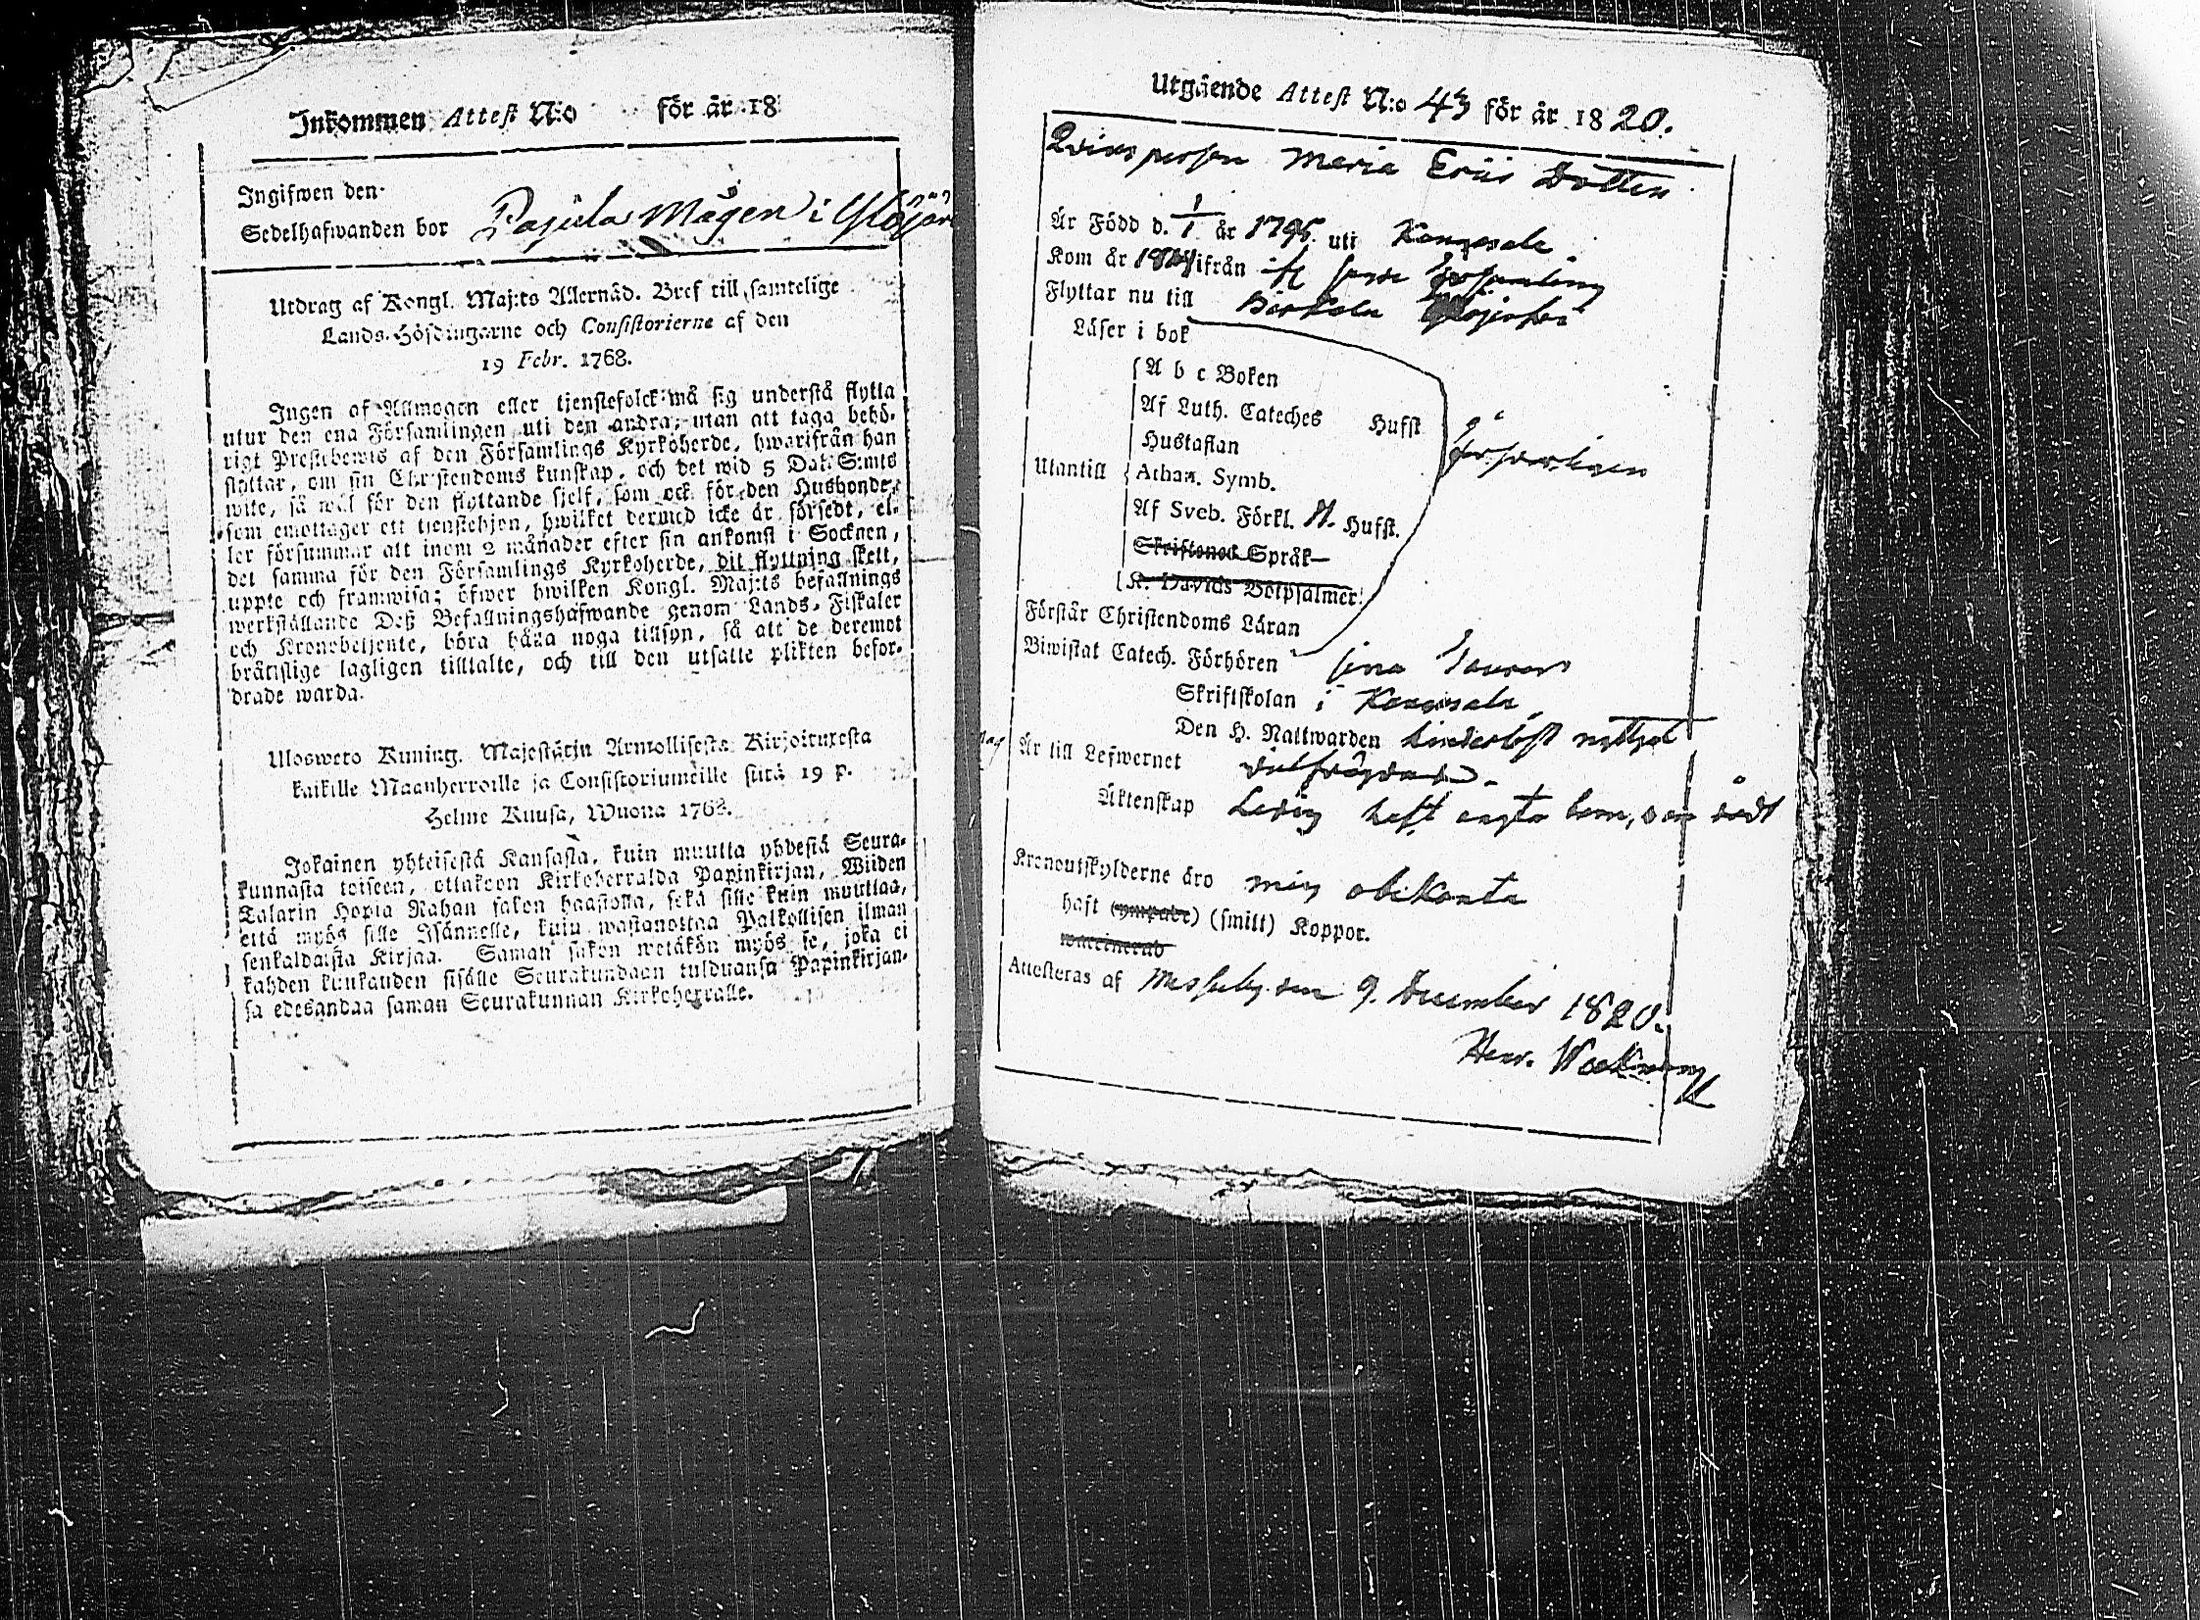 Inkommen Attest N:o för år 18
Ingifwen den
Sedelhafwanden bor Pajula Mågen i Ylöjär
Utdrag af Kongl. Maj:ts Allernåd. Bref till samtelige
Lands-Höfdingarne och Consistorierne af den
19 Febr. 1768.
Ingen af Allmogen eller tjenstefolck må sig understå flytta
utur den ena Församlingen uti den andra, utan att taga behö-
rigt Prestebewis af den Församlings Kyrkoherde, hwarifrån han
flyttar, om sin Christendoms kunskap, och det wid 5 Dal. S:mts
wite, så wäl för den flyttande sjelf, som ock för den Husbonde,
som emottager ett tjenstehjon, hwilket dermed icke är försedt, el-
ler försummar att inom 2 månader efter sin ankomst i Socknen,
det samma för den Församlings Kyrkoherde, dit flyttning skett,
uppte och framwisa; öfwer hwilken Kongl. Maj:ts befallnings
werkställande Deß Befallningshafwande genom Lands-Fiskaler
och Kronobetjente, böra hålla noga tillsyn, så att de deremot
bråtislige lagligen tilltalte, och till den utsatte plikten befor-
drade warda.
Ulosweto Kuning. Majestätin Armollisesta Kirjoituxesta
kaikille Maanherroille ja Consistoriumeille siitä 19 p.
Helme Kuusa, Wuona 1768.
Jokainen yhteisestä Kansasta, kuin muutta yhdestä Seura-
kunnasta toiseen, ottakoon Kirkoherralda Papinkirjan, Wiiden
Talarin Hopia Rahan sakon haastolla, sekä sille kuin muuttaa,
että myös sille Isännelle, kuin wastanottaa Palkollisen ilman
senkaldaista Kirjaa. Saman sakon wetäkön myös se, joka ei
kahden kuukauden sisälle Seurakundaan tulduansa Papinkirjan-
sa edesandaa saman Seurakunnan Kirkoherralle.
Utgående Attest N:o 43 för år 1820.
Qvinspersen Maria Eriks Dotter
Är Född d. 1/1 år 1796 uti Kangasala
Kom år ifrån
Flyttar nu till Birkala Ylöjärvi
Läser i bok
A b c Boken
Af Luth. Cateches Hufst
Hustaflan
försvarligen
Utantill Athan. Symb.
Af Sveb. Förkl. Hufst.
Skriftenes Språk
K. Davids Botpsalmer
Förstår Christendoms Läran
Biwistat Catech. Förhören
Skriftskolan i Kangasala
Den H. Nattwarden hinderlöst nyttjat
Är till Lefwernet
Äktenskap Ledig haft oägta barn, som dödt
Kronoutskylderne äro mig obekanta
haft (ympade) (smitt) Koppor.
waccinerad
Attesteras af Messuby den 9. December 1820.
Henr. Wacklin